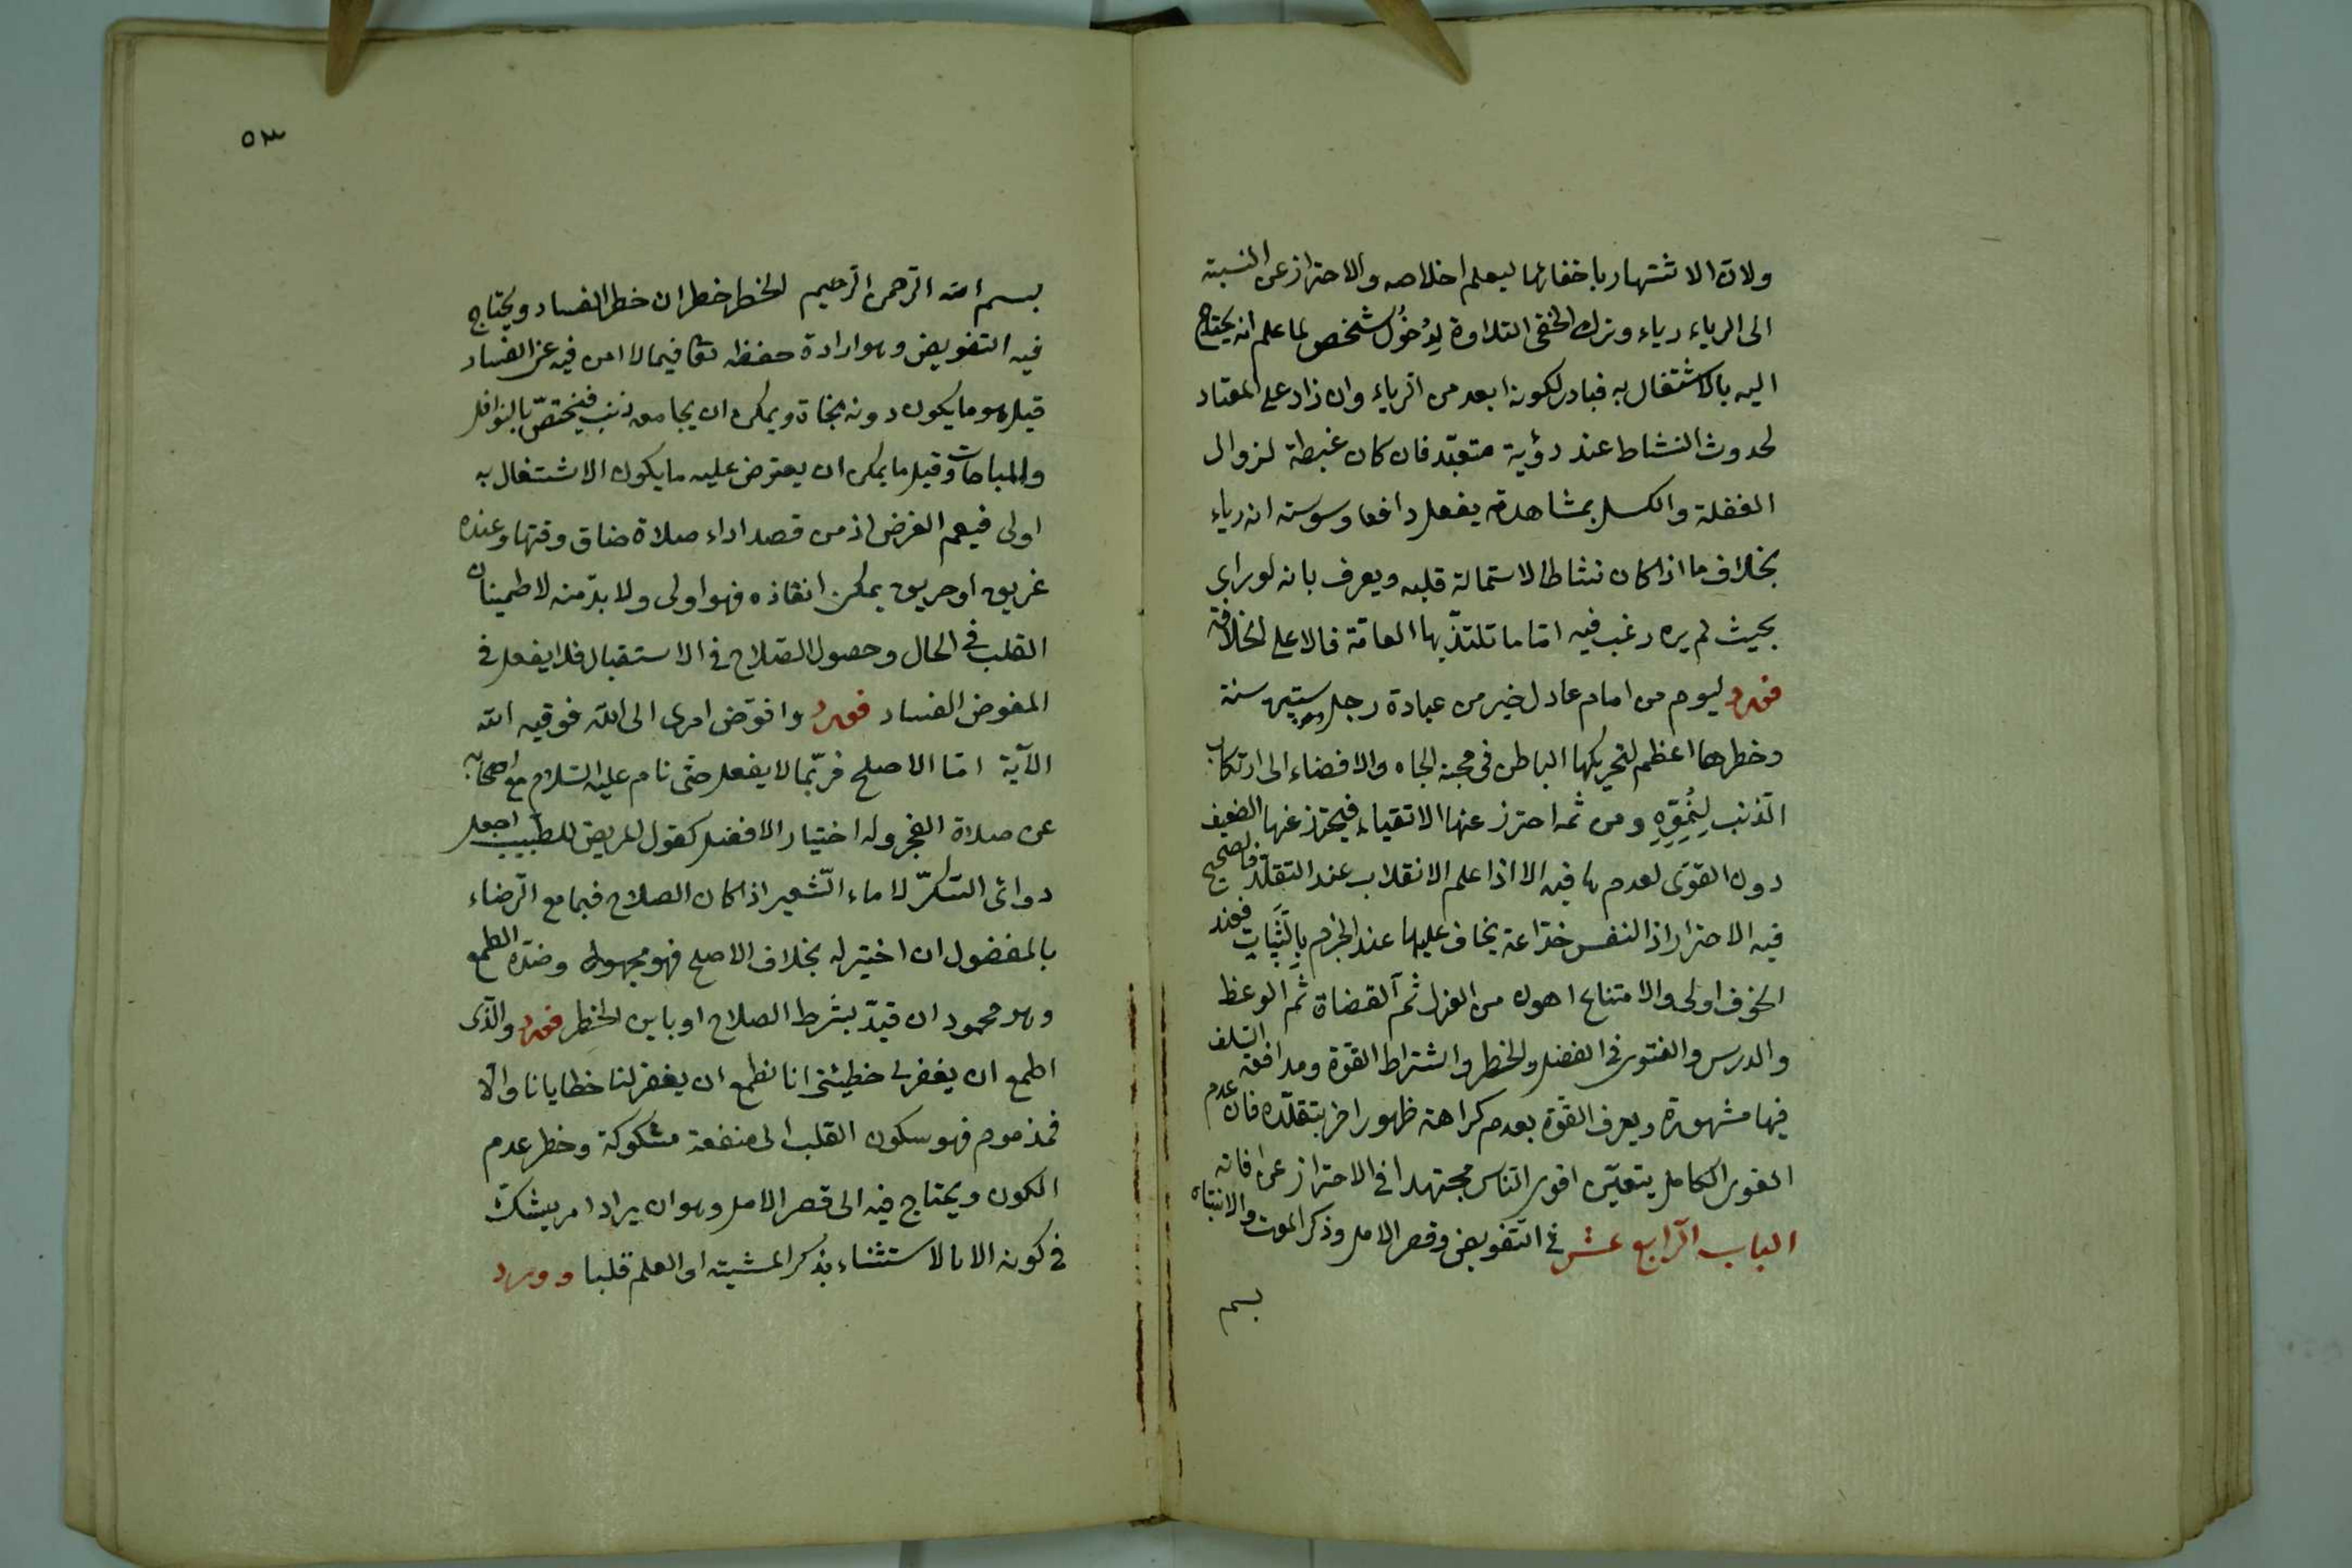 ولان الاشتهار باخفائها ليعلم اخلاصه والاحتراز عن النسبة
الى الرياء رياء وترك النخعى التلاوة لِدُخُول شخص لما علم انه يحتاج
اليه بالاشتغال به فبادر لكونه ابعد من الرياء وان زاد على المعتاد
لحدوث النشاط عند رؤية متعبّد فان كان غبطة لزوال
الغفلة والكسل بمشاهدته يفعل دافعا وسوسته انه رياء
بخلاف ما اذا كان نشاطا لاستمالة قلبه ويعرف بانه لو راى
بحيث لم يره رغب فيه امّا ما تلتذّ بها العامّة فالاعلى الخلافة
فورد ليوم من امام عادل خير من عبادة رجل ستين سنة
وخطرها اعظم لتحريكها الباطن فى محبة الجاه والافضاء الى ارتكاب
الذنب لِنُمُوِّهِ ومن ثمه احترز عنها الاتقياء فيحترز عنها الضعيف
دون القوى لعدم ما فيه الا اذا علم الانقلاب عند التقلّد فالصحيح
فيه الاحتراز اذ النفس خدّاعة يخاف عليها عند الجزم بِالثَّبَاتِ فعند
الخوف اولى والامتناع اهون من العزل ثمّ القضاة ثم الوعظ
والدرس والفتوى فى الفضل والخطر واشتراط القوّة ومدافعة السلف
فيها مشهورة ويعرف القوّة بعدم كراهة ظهور اخر بتقلّده فان عدم
القوى الكامل يتعيّن اقوى الناس مجتهدا فى الاحتراز عن افاته
الباب الرابع عشر فى التفويض وقصر الامل وذكر الموت والانتباه
بسم
٥٣
بسم الله الرّحمن الرّحيم الخطر خطران خطر الفساد ويحتاج
فيه التفويض وهو ارادة حفظه تعا فيما لا امن فيه عن الفساد
قيل هو ما يكون دونه نجاة ويمكن ان يجامعه ذنب فيختصّ بالنوافل
والمباحات وقيل ما يمكن ان يعترض عليه ما يكون الاشتغال به
اولى فيعم الفرض اذ من قصد اداء صلاة ضاق وقتها وعنده
غريق او حريق يمكن انقاذه فهو اولى ولا بدّ منه لاطمينان
القلب فى الحال وحصول الصّلاح فى الاستقبال فلا يفعل فى
المفوض الفساد فورد وافوّض امرى الى الله فوقيه الله
الآية امّا الاصلح فربّما لا يفعل حتى نام عليه السّلام مع اصحابه
عن صلاة الفجر وله اختيار الافضل كقول المريض للطّبيب اجعل
دوائى السّكّر لا ماء الشّعير اذا كان الصلاح فيهما مع الرّضاء
بالمفضول ان اختير له بخلاف الاصلح فهو مجهول وضدّه الطمع
وهو محمود ان قيدّ بشرط الصلاح او باين الخطر فورد والّذى
اطمع ان يغفر لى خطيئتى انا نطمع ان يغفر لنا خطايانا والّا
فمذموم فهو سكون القلب الى منفعة مشكوكة وخطر عدم
الكون ويحتاج فيه الى قصر الامل وهو ان يراد امر يشكّ
فى كونه الا بالاستثناء بذكر المشيّة او العلم قلبا وورد